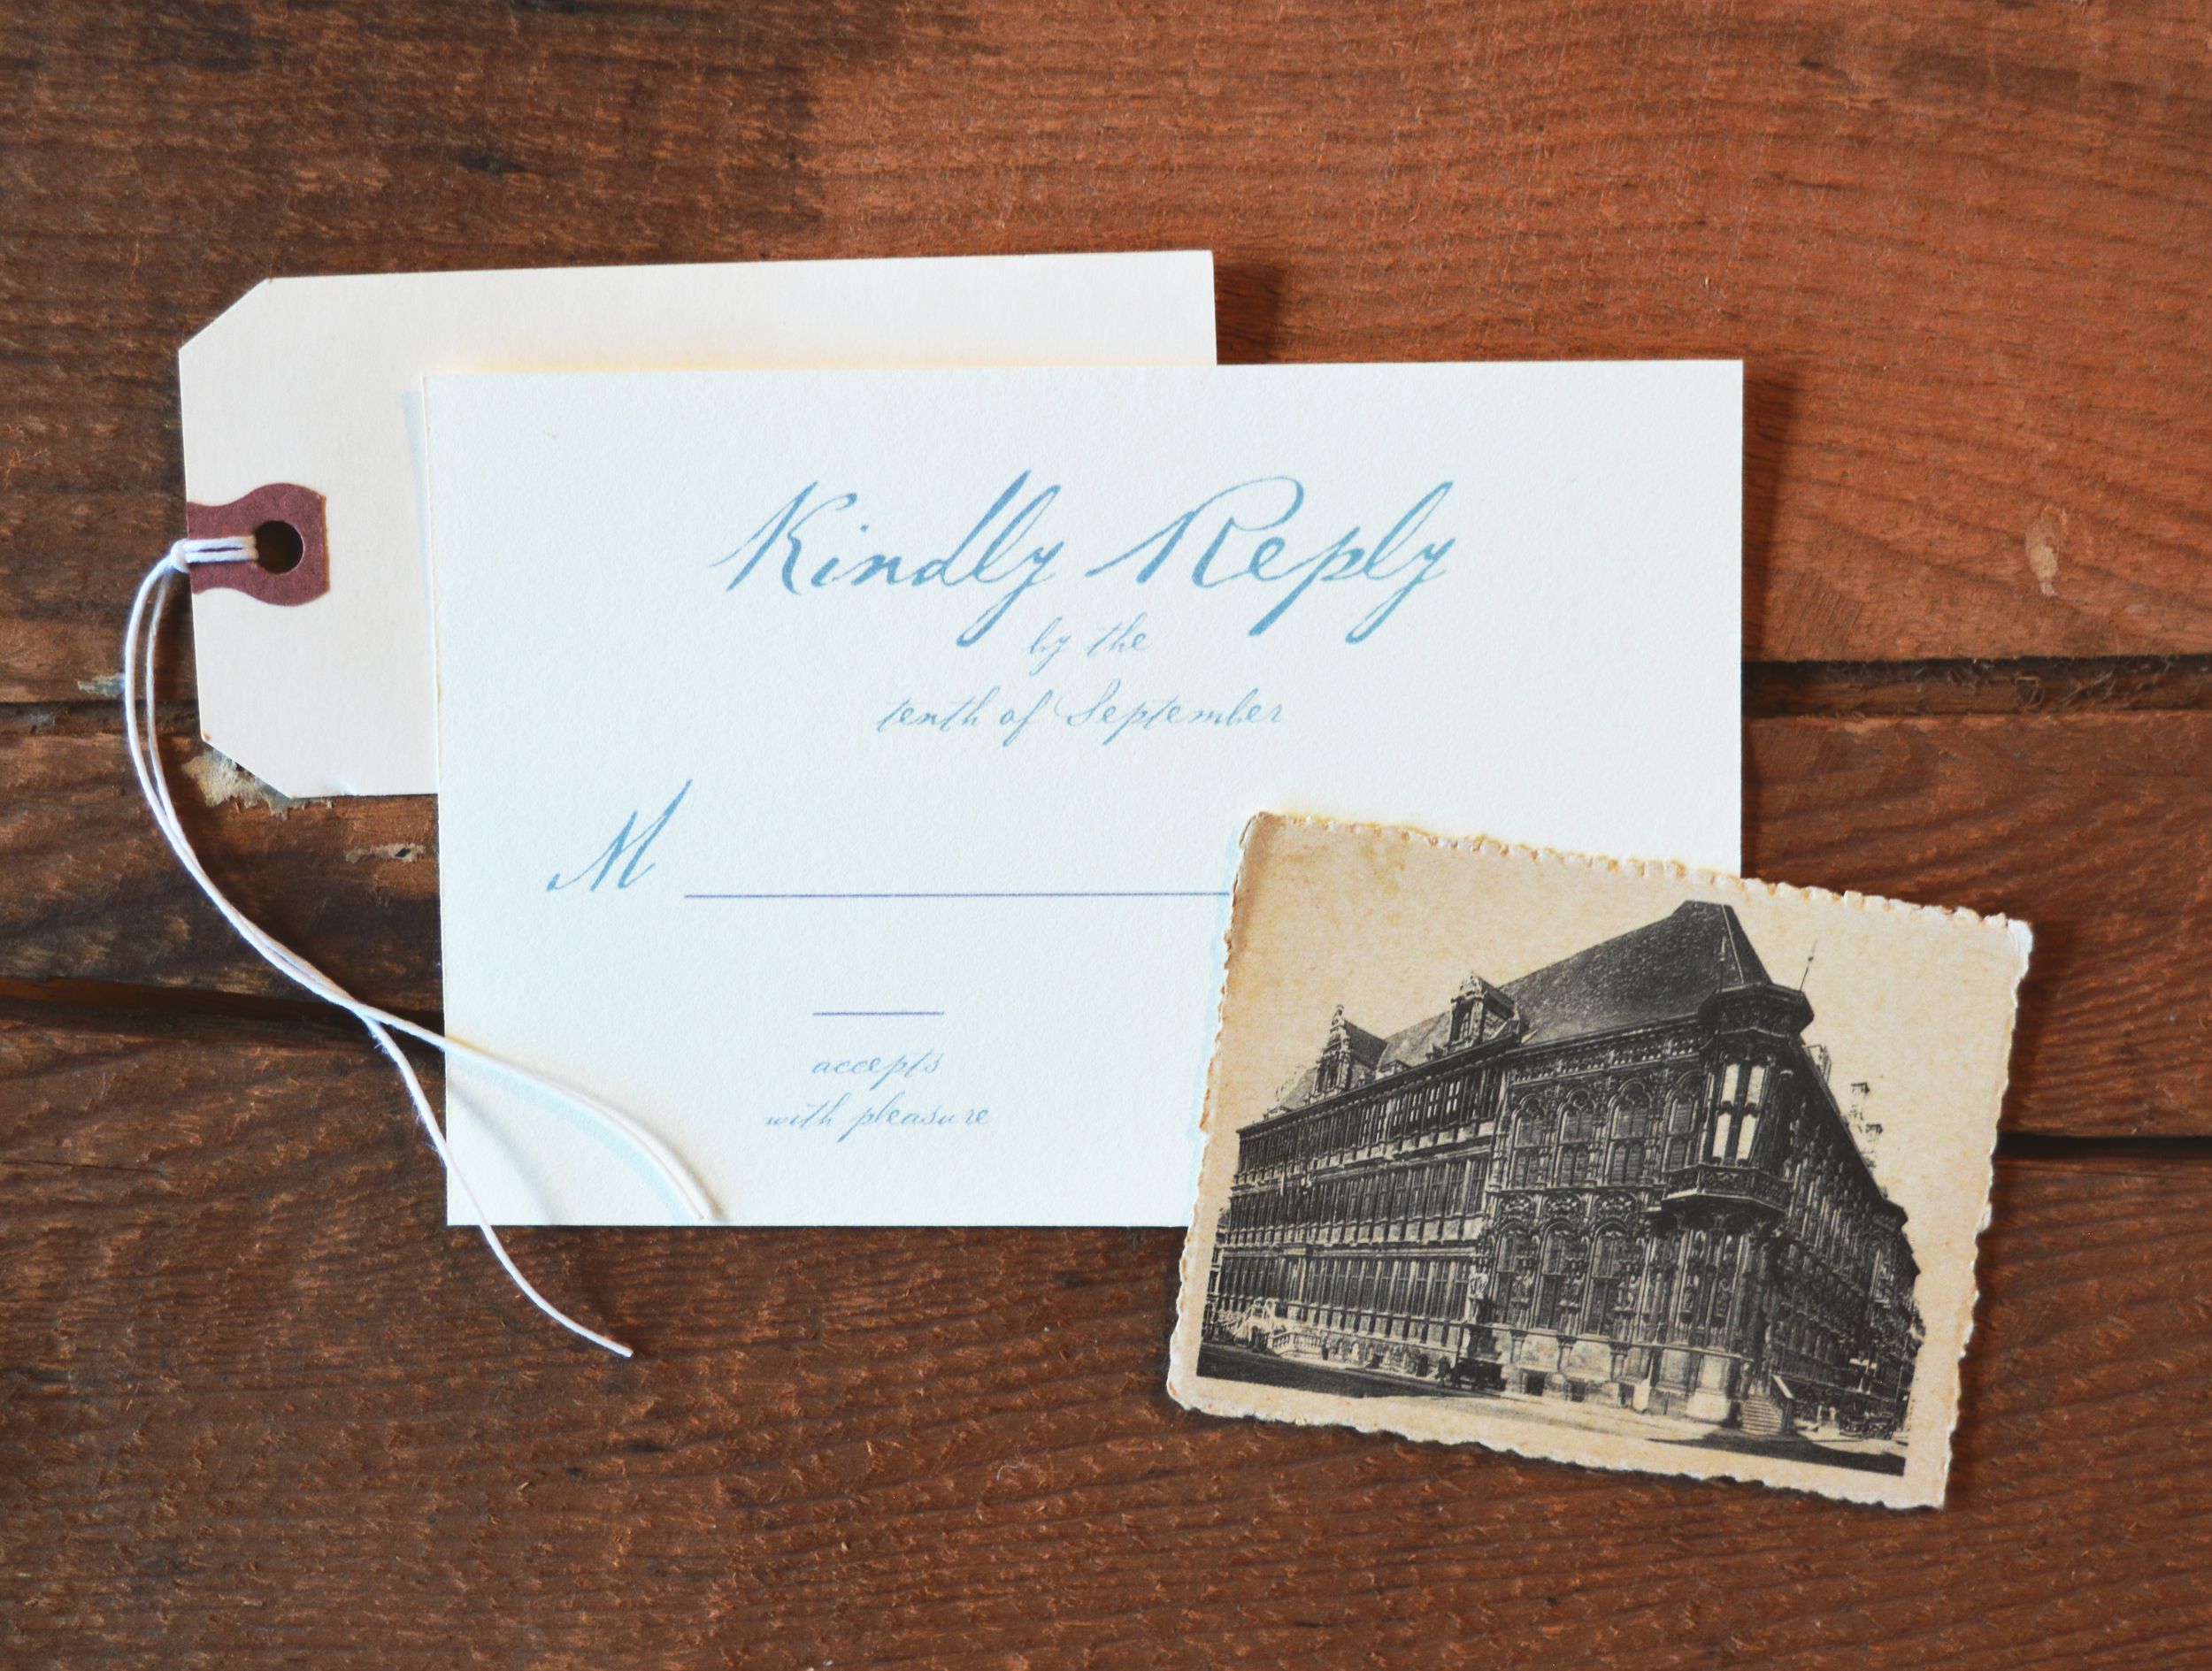 Kindly Reply
by the
tenth of September
M
accepts
with pleasure